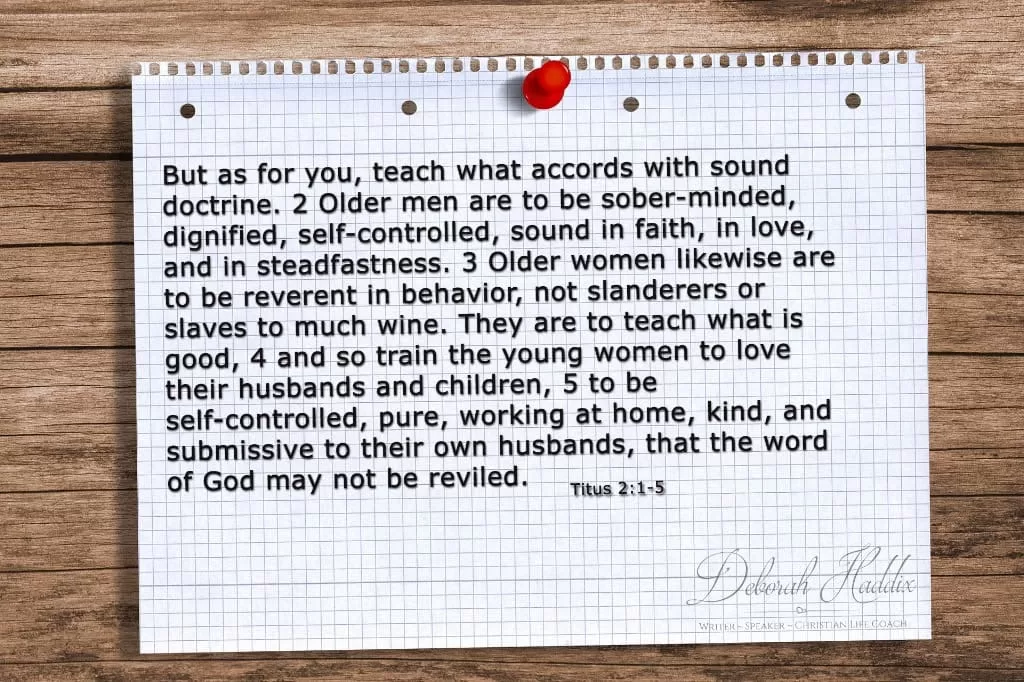 But as for you, teach what accords with sound
doctrine. 2 Older men are to be sober-minded,
dignified, self-controlled, sound in faith, in love,
and in steadfastness. 3 Older women likewise are
to be reverent in behavior, not slanderers or
slaves to much wine. They are to teach what is
good, 4 and so train the young women to love
their husbands and children, 5 to be
self-controlled, pure, working at home, kind, and
submissive to their own husbands, that the word
of God may not be reviled.
Titus 2:1-5
Deborah Haddix
Writer ~ Speaker ~ Christian Life Coach